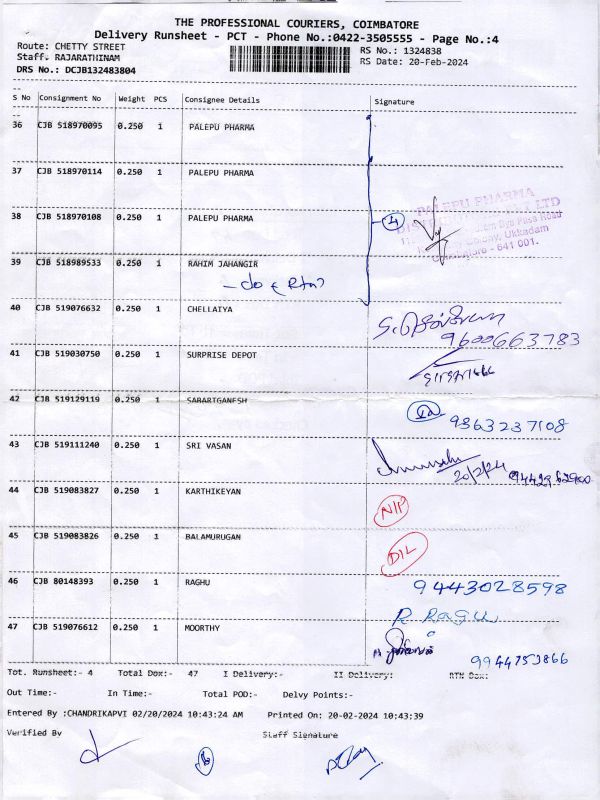 THE PROFESSIONAL COURIERS, COIMBATORE
Delivery Runsheet - PCT - Phone No.:0422-3505555 - Page No.:4
Route: CHETTY STREET
RS No.: 1324838
Staff: RAJARATHINAM
RS Date: 20-Feb-2024
DRS No.: DCJB132483804
S No Consignment No Weight PCS Consignee Details Signature
36 CJB 518970095 0.250 1 PALEPU PHARMA
37 CJB 518970114 0.250 1 PALEPU PHARMA
PALEPU PHARMA
38 CJB 518970108 0.250 1 PALEPU PHARMA
4
Ukkadam
641 001.
39 CJB 518989533 0.250 1 RAHIM JAHANGIR
40 CJB 519076632 0.250 1 CHELLAIYA
9600663783
41 CJB 519030750 0.250 1 SURPRISE DEPOT
42 CJB 519129119 0.250 1 SABARIGANESH
9363237108
43 CJB 519111240 0.250 1 SRI VASAN
20/2/24
44 CJB 519083827 0.250 1 KARTHIKEYAN
N/P
45 CJB 519083826 0.250 1 BALAMURUGAN
D/L
46 CJB 80148393 0.250 1 RAGHU
9443028598
R RAGU
47 CJB 519076612 0.250 1 MOORTHY
9944753866
Tot. Runsheet:- 4 Total Dox:- 47 I Delivery:- II Delivery: RTN Dox:
Out Time:- In Time:- Total POD:- Delvy Points:-
Entered By :CHANDRIKAPVI 02/20/2024 10:43:24 AM Printed On: 20-02-2024 10:43:39
Verified By Staff Signature